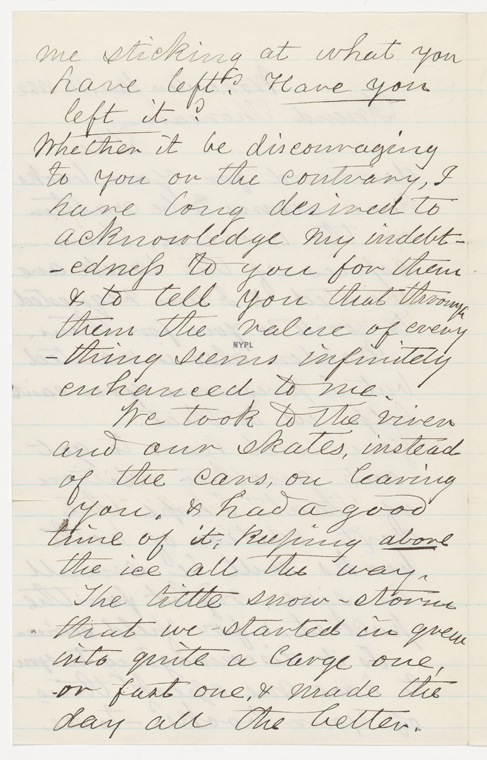 me sticking at what you
have left? Have you
left it?
Whether it be discouraging
to you or the contrary, I
have long desired to
acknowledge my indebt-
-edness to you for them
& to tell you that through
them the value of every
-thing seems infinitely
NYPL
enhanced to me.
We took to the river
and our skates, instead
of the cars, on leaving
you, & had a good
time of it, keeping above
the ice all the way.
The little snow-storm
that we started in grew
into quite a large one,
or fast one, & made the
day all the better.